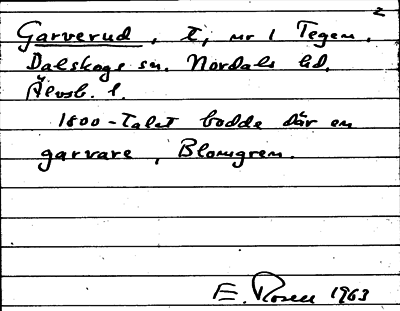 2
Garverud, t, nr 1 Tegen.
Dalskogs sn. Nordals hd.
Älvsb. l.
1800-talet bodde där en
garvare, Blomgren.
E. Rosell 1963